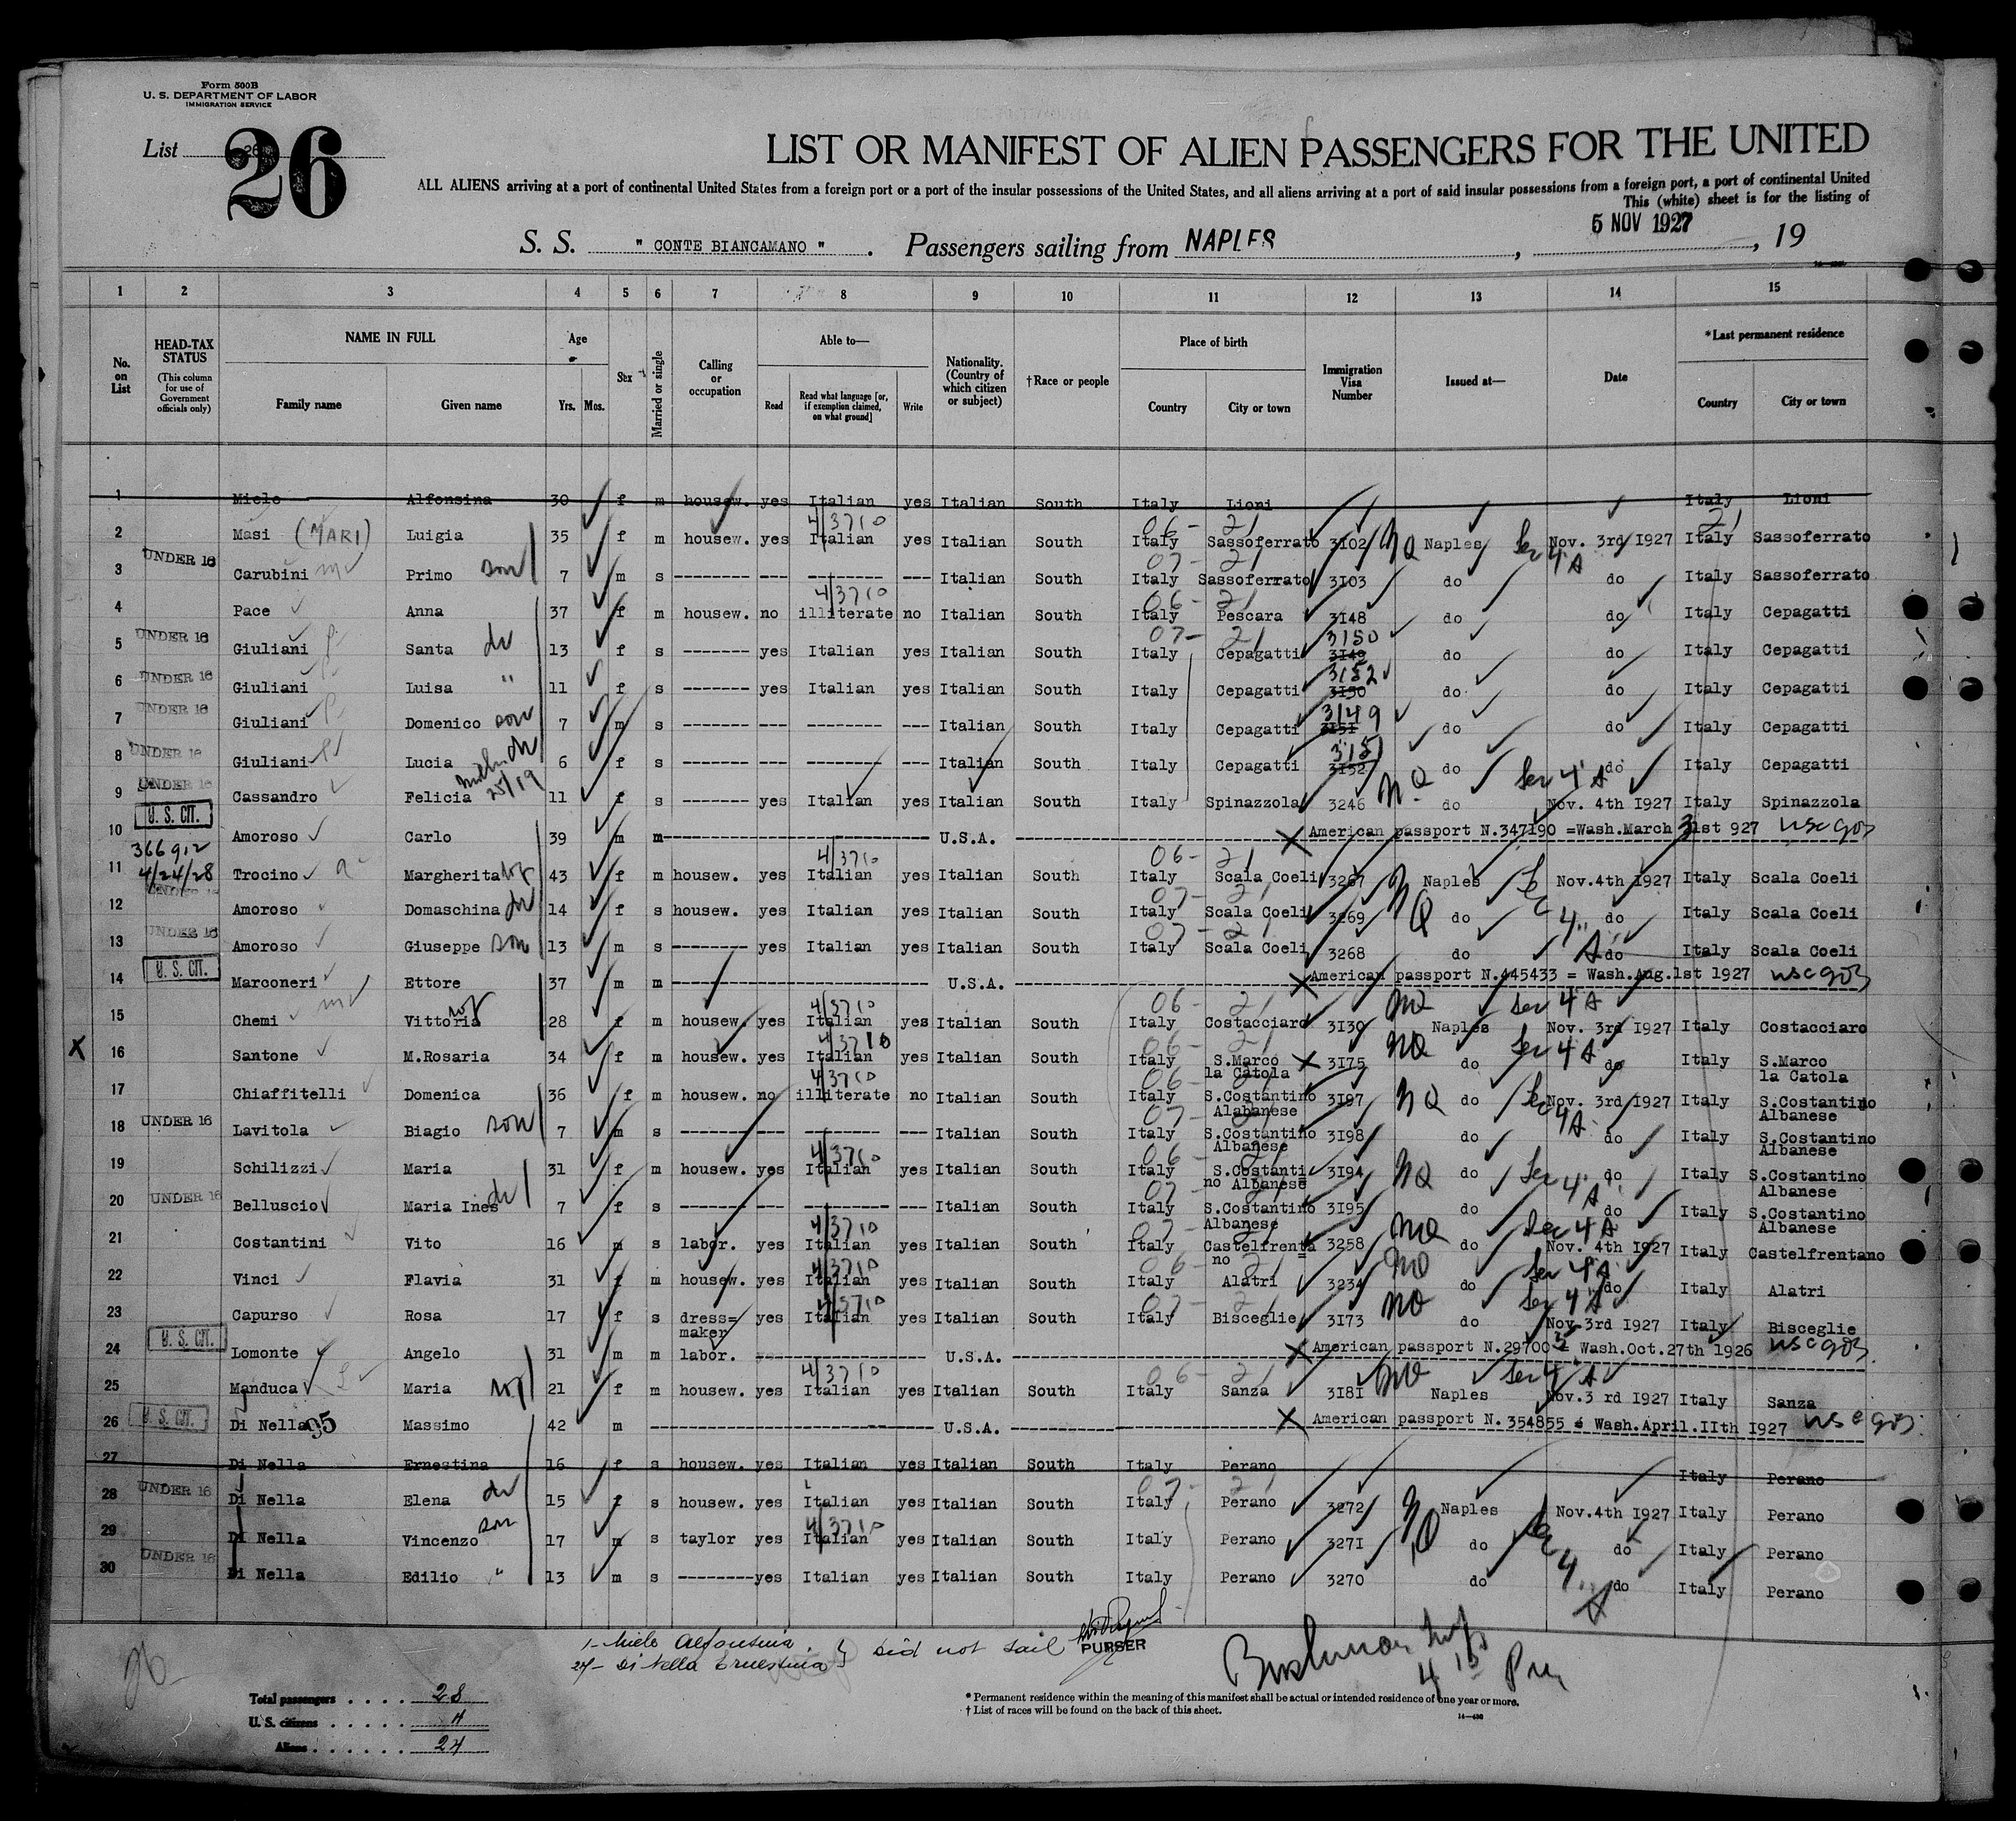 Form 500B
U. S. DEPARTMENT OF LABOR
IMMIGRATION SERVICE
List 26
26
LIST OR MANIFEST OF ALIEN PASSENGERS FOR THE UNITED
ALL ALIENS arriving at a port of continental United States from a foreign port or a port of the insular possessions of the United States, and all aliens arriving at a port of said insular possessions from a foreign port, a port of continental United
This (white) sheet is for the listing of
S. S. " CONTE BIANCAMANO " . Passengers sailing from NAPLES , 5 NOV 1927 , 19
1 2 3 4 5 6 7 8 9 10 11 12 13 14 15
No. on List
HEAD-TAX STATUS (This column for use of Government officials only)
NAME IN FULL Family name Given name
Age Yrs. Mos.
Sex
Married or single
Calling or occupation
Able to— Read Read what language [or, if exemption claimed, on what ground] Write
Nationality. (Country of which citizen or subject)
†Race or people
Place of birth Country City or town
Immigration Visa Number
Issued at—
Date
*Last permanent residence Country City or town
1 Mielo Alfonsina 30 f m housew. yes Italian yes Italian South Italy Lioni Italy Lioni
2 Masi (MARI) Luigia 35 f m housew. yes 4/3710 Italian yes Italian South 06- 21 Italy Sassoferrato 3102 NQ Naples Sec 4 A Nov. 3rd 1927 21 Italy Sassoferrato
3 UNDER 16 Carubini m Primo son 7 m s ------- --- -------- --- Italian South 07- 21 Italy Sassoferrato 3103 do do Italy Sassoferrato
4 Pace Anna 37 f m housew. no 4/3710 illiterate no Italian South 06- 21 Italy Pescara 3148 do do Italy Cepagatti
5 UNDER 16 Giuliani P Santa dr 13 f s ------- yes Italian yes Italian South 07- 21 Italy Cepagatti 3150 3149 do do Italy Cepagatti
6 UNDER 16 Giuliani P Luisa " 11 f s ------- yes Italian yes Italian South Italy Cepagatti 3152 3150 do do Italy Cepagatti
7 UNDER 16 Giuliani P Domenico son 7 m s ------- --- -------- --- Italian South Italy Cepagatti 3149 3151 do do Italy Cepagatti
8 UNDER 16 Giuliani P Lucia dr 6 f s ------- --- -------- --- Italian South Italy Cepagatti 3151 3152 do do Italy Cepagatti
9 UNDER 16 Cassandro Felicia 25/19 11 f s ------- yes Italian yes Italian South Italy Spinazzola 3246 NQ do Sec 4 A Nov. 4th 1927 Italy Spinazzola
10 U. S. CIT. Amoroso Carlo 39 m m ------- U.S.A. ------- X American passport N.347190 =Wash.March 31st 927
366912
11 4/24/28 Trocino a Margherita wf 43 f m housew. yes 4/3710 Italian yes Italian South 06- 21 Italy Scala Coeli 3267 NQ Naples Sec 4 A Nov.4th 1927 Italy Scala Coeli
12 UNDER 16 Amoroso Domaschina dr 14 f s housew. yes Italian yes Italian South 07- 21 Italy Scala Coeli 3269 do do Italy Scala Coeli
13 UNDER 16 Amoroso Giuseppe son 13 m s ------- yes Italian yes Italian South 07- 21 Italy Scala Coeli 3268 do do Italy Scala Coeli
14 U. S. CIT. Marconeri Ettore 37 m m ------- U.S.A. ------- X American passport N.445433 = Wash.Aug.1st 1927
15 Chemi m Vittoria wf 28 f m housew. yes 4/3710 Italian yes Italian South 06- 21 Italy Costacciaro 3130 NQ Naples Sec 4 A Nov. 3rd 1927 Italy Costacciaro
X 16 Santone M.Rosaria 34 f m housew. yes 4/3710 Italian yes Italian South 06- 21 Italy S.Marco la Catola X 3175 NQ do Sec 4 A do Italy S.Marco la Catola
17 Chiaffitelli Domenica 36 f m housew. no 4/3710 illiterate no Italian South 06- Italy S.Costantino Alabanese 3197 NQ do Sec 4A Nov. 3rd 1927 Italy S.Costantino Albanese
18 UNDER 16 Lavitola Biagio son 7 m s ------- --- -------- --- Italian South 07- Italy S.Costantino Albanese 3198 do do Italy S.Costantino Albanese
19 Schilizzi Maria 31 f m housew. yes 4/3710 Italian yes Italian South 06- Italy S.Costanti no Albanese 3194 NQ do Sec 4 A do Italy S.Costantino Albanese
20 UNDER 16 Belluscio Maria Ines dr 7 f s ------- --- -------- --- Italian South 07- Italy S.Costantino Albanese 3195 do do Italy S.Costantino Albanese
21 Costantini Vito 16 m s labor. yes 4/3710 Italian yes Italian South 07- Italy Castelfrenta = no 3258 NQ do Sec 4 A Nov. 4th 1927 Italy Castelfrentano
22 Vinci Flavia 31 f m housew. yes 4/3710 Italian yes Italian South 06- 21 Italy Alatri 3234 NQ do Sec 4 A do Italy Alatri
23 Capurso Rosa 17 f s dress= maker yes 4/3710 Italian yes Italian South 07- 21 Italy Bisceglie 3173 NQ do Sec 4 A Nov 3rd 1927 Italy Bisceglie
24 U. S. CIT. Lomonte Angelo 31 m m labor. ------- U.S.A. ------- X American passport N.29700 = Wash.Oct.27th 1926
25 Manduca L Maria wf 21 f m housew. yes 4/3710 Italian yes Italian South 06- 21 Italy Sanza 3181 NQ Naples Sec 4 A Nov.3 rd 1927 Italy Sanza
26 U. S. CIT. Di Nella 95 Massimo 42 m ------- U.S.A. ------- X American passport N. 354855 = Wash.April.IIth 1927
27 Di Nella Ernestina 16 f s housew. yes Italian yes Italian South Italy Perano Italy Perano
28 UNDER 16 Di Nella Elena dr 15 f s housew. yes Italian yes Italian South 07- 21 Italy Perano 3272 NQ Naples Sec 4 A Nov.4th 1927 Italy Perano
29 Di Nella Vincenzo son 17 m s taylor yes 4/3710 Italian yes Italian South Italy Perano 3271 do do Italy Perano
30 UNDER 16 Di Nella Edilio " 13 m s ------- yes Italian yes Italian South Italy Perano 3270 do do Italy Perano
1- Mielo Alfonsina
27- Di Nella Ernestina } Did not sail
PURSER
26
Total passengers . . . . 28
U. S. citizens . . . . . 4
Aliens . . . . . . 24
* Permanent residence within the meaning of this manifest shall be actual or intended residence of one year or more.
† List of races will be found on the back of this sheet.
14—430